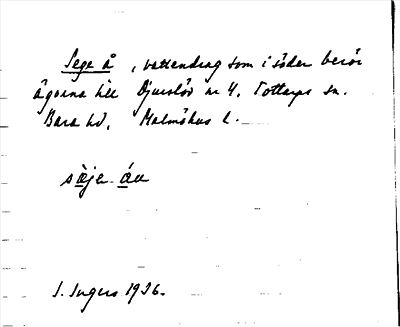 Sege å, vattendrag som i söder berör
ägorna till Djurslöv nr 4, Tottarps sn.
Bara hd, Malmöhus l.
sèje áu
I. Ingers 1926.